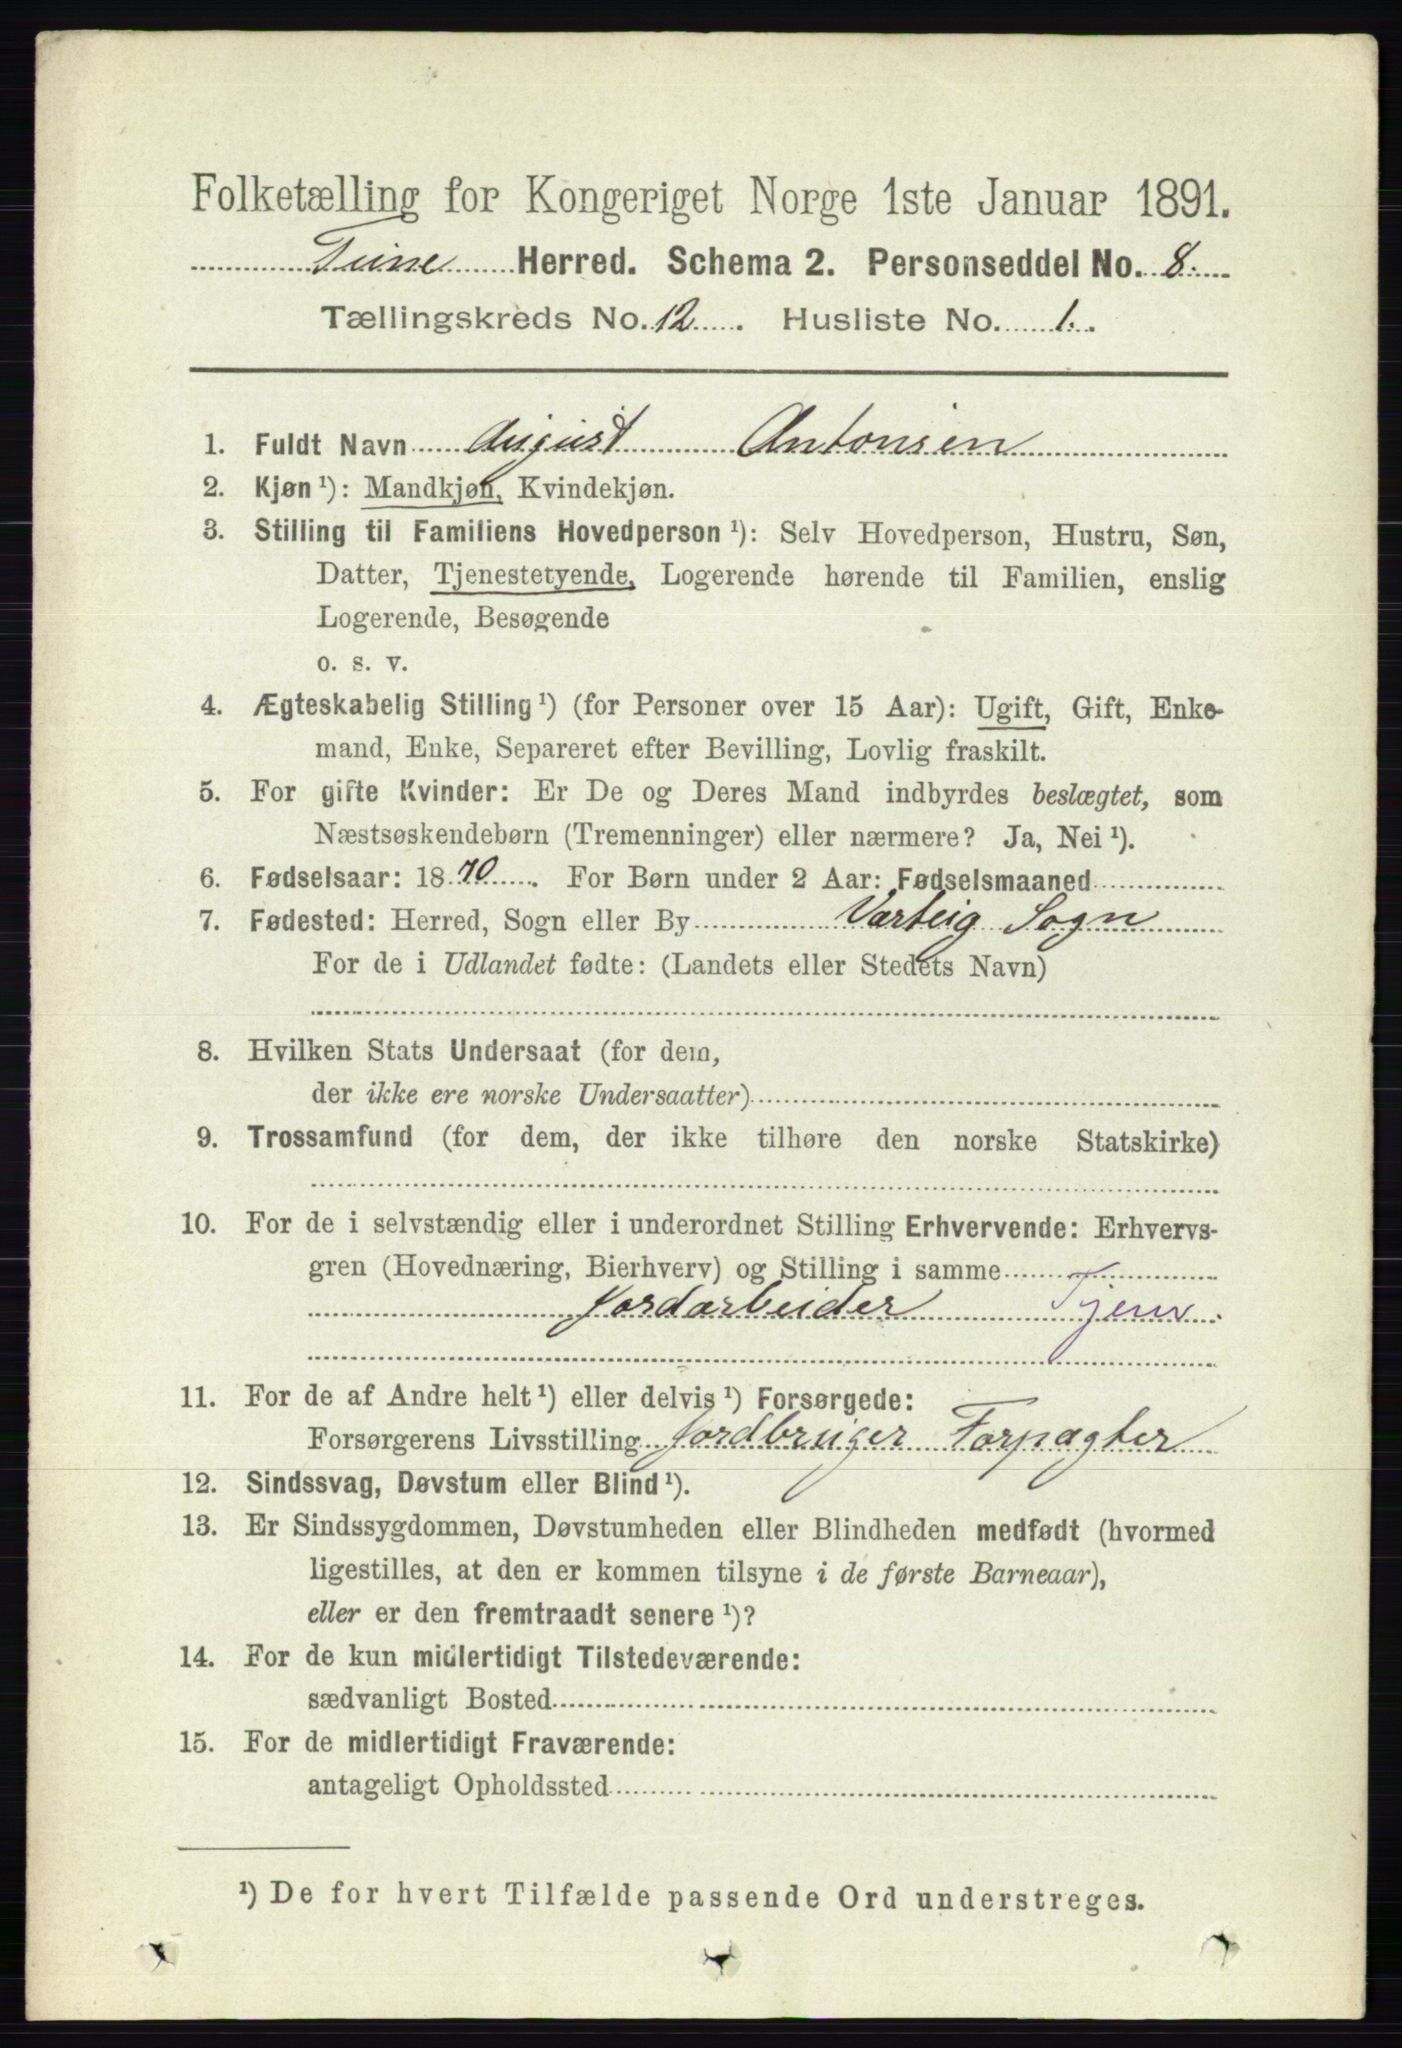 Folketælling for Kongeriget Norge 1ste Januar 1891.
Tune Herred. Schema 2. Personseddel No. 8.
Tællingskreds No. 12. Husliste No. 1.
1. Fuldt Navn August Antonsen
2. Kjøn ¹): Mandkjøn, Kvindekjøn.
3. Stilling til Familiens Hovedperson ¹): Selv Hovedperson, Hustru, Søn,
Datter, Tjenestetyende, Logerende hørende til Familien, enslig
Logerende, Besøgende
o. s. v.
4. Ægteskabelig Stilling ¹) (for Personer over 15 Aar): Ugift, Gift, Enke-
mand, Enke, Separeret efter Bevilling, Lovlig fraskilt.
5. For gifte Kvinder: Er De og Deres Mand indbyrdes beslægtet, som
Næstsøskendebørn (Tremenninger) eller nærmere? Ja, Nei ¹).
6. Fødselsaar: 1870. For Børn under 2 Aar: Fødselsmaaned
7. Fødested: Herred, Sogn eller By Varteig Sogn
For de i Udlandet fødte: (Landets eller Stedets Navn)
8. Hvilken Stats Undersaat (for dem,
der ikke ere norske Undersaatter)
9. Trossamfund (for dem, der ikke tilhøre den norske Statskirke)
10. For de i selvstændig eller i underordnet Stilling Erhvervende: Erhvervs-
gren (Hovednæring, Bierhverv) og Stilling i samme
Jordarbeider Tjener
11. For de af Andre helt ¹) eller delvis ¹) Forsørgede:
Forsørgerens Livsstilling Jordbruger Forpagter
12. Sindssvag, Døvstum eller Blind ¹).
13. Er Sindssygdommen, Døvstumheden eller Blindheden medfødt (hvormed
ligestilles, at den er kommen tilsyne i de første Barneaar),
eller er den fremtraadt senere ¹)?
14. For de kun midlertidigt Tilstedeværende:
sædvanligt Bosted
15. For de midlertidigt Fraværende:
antageligt Opholdssted
¹) De for hvert Tilfælde passende Ord understreges.